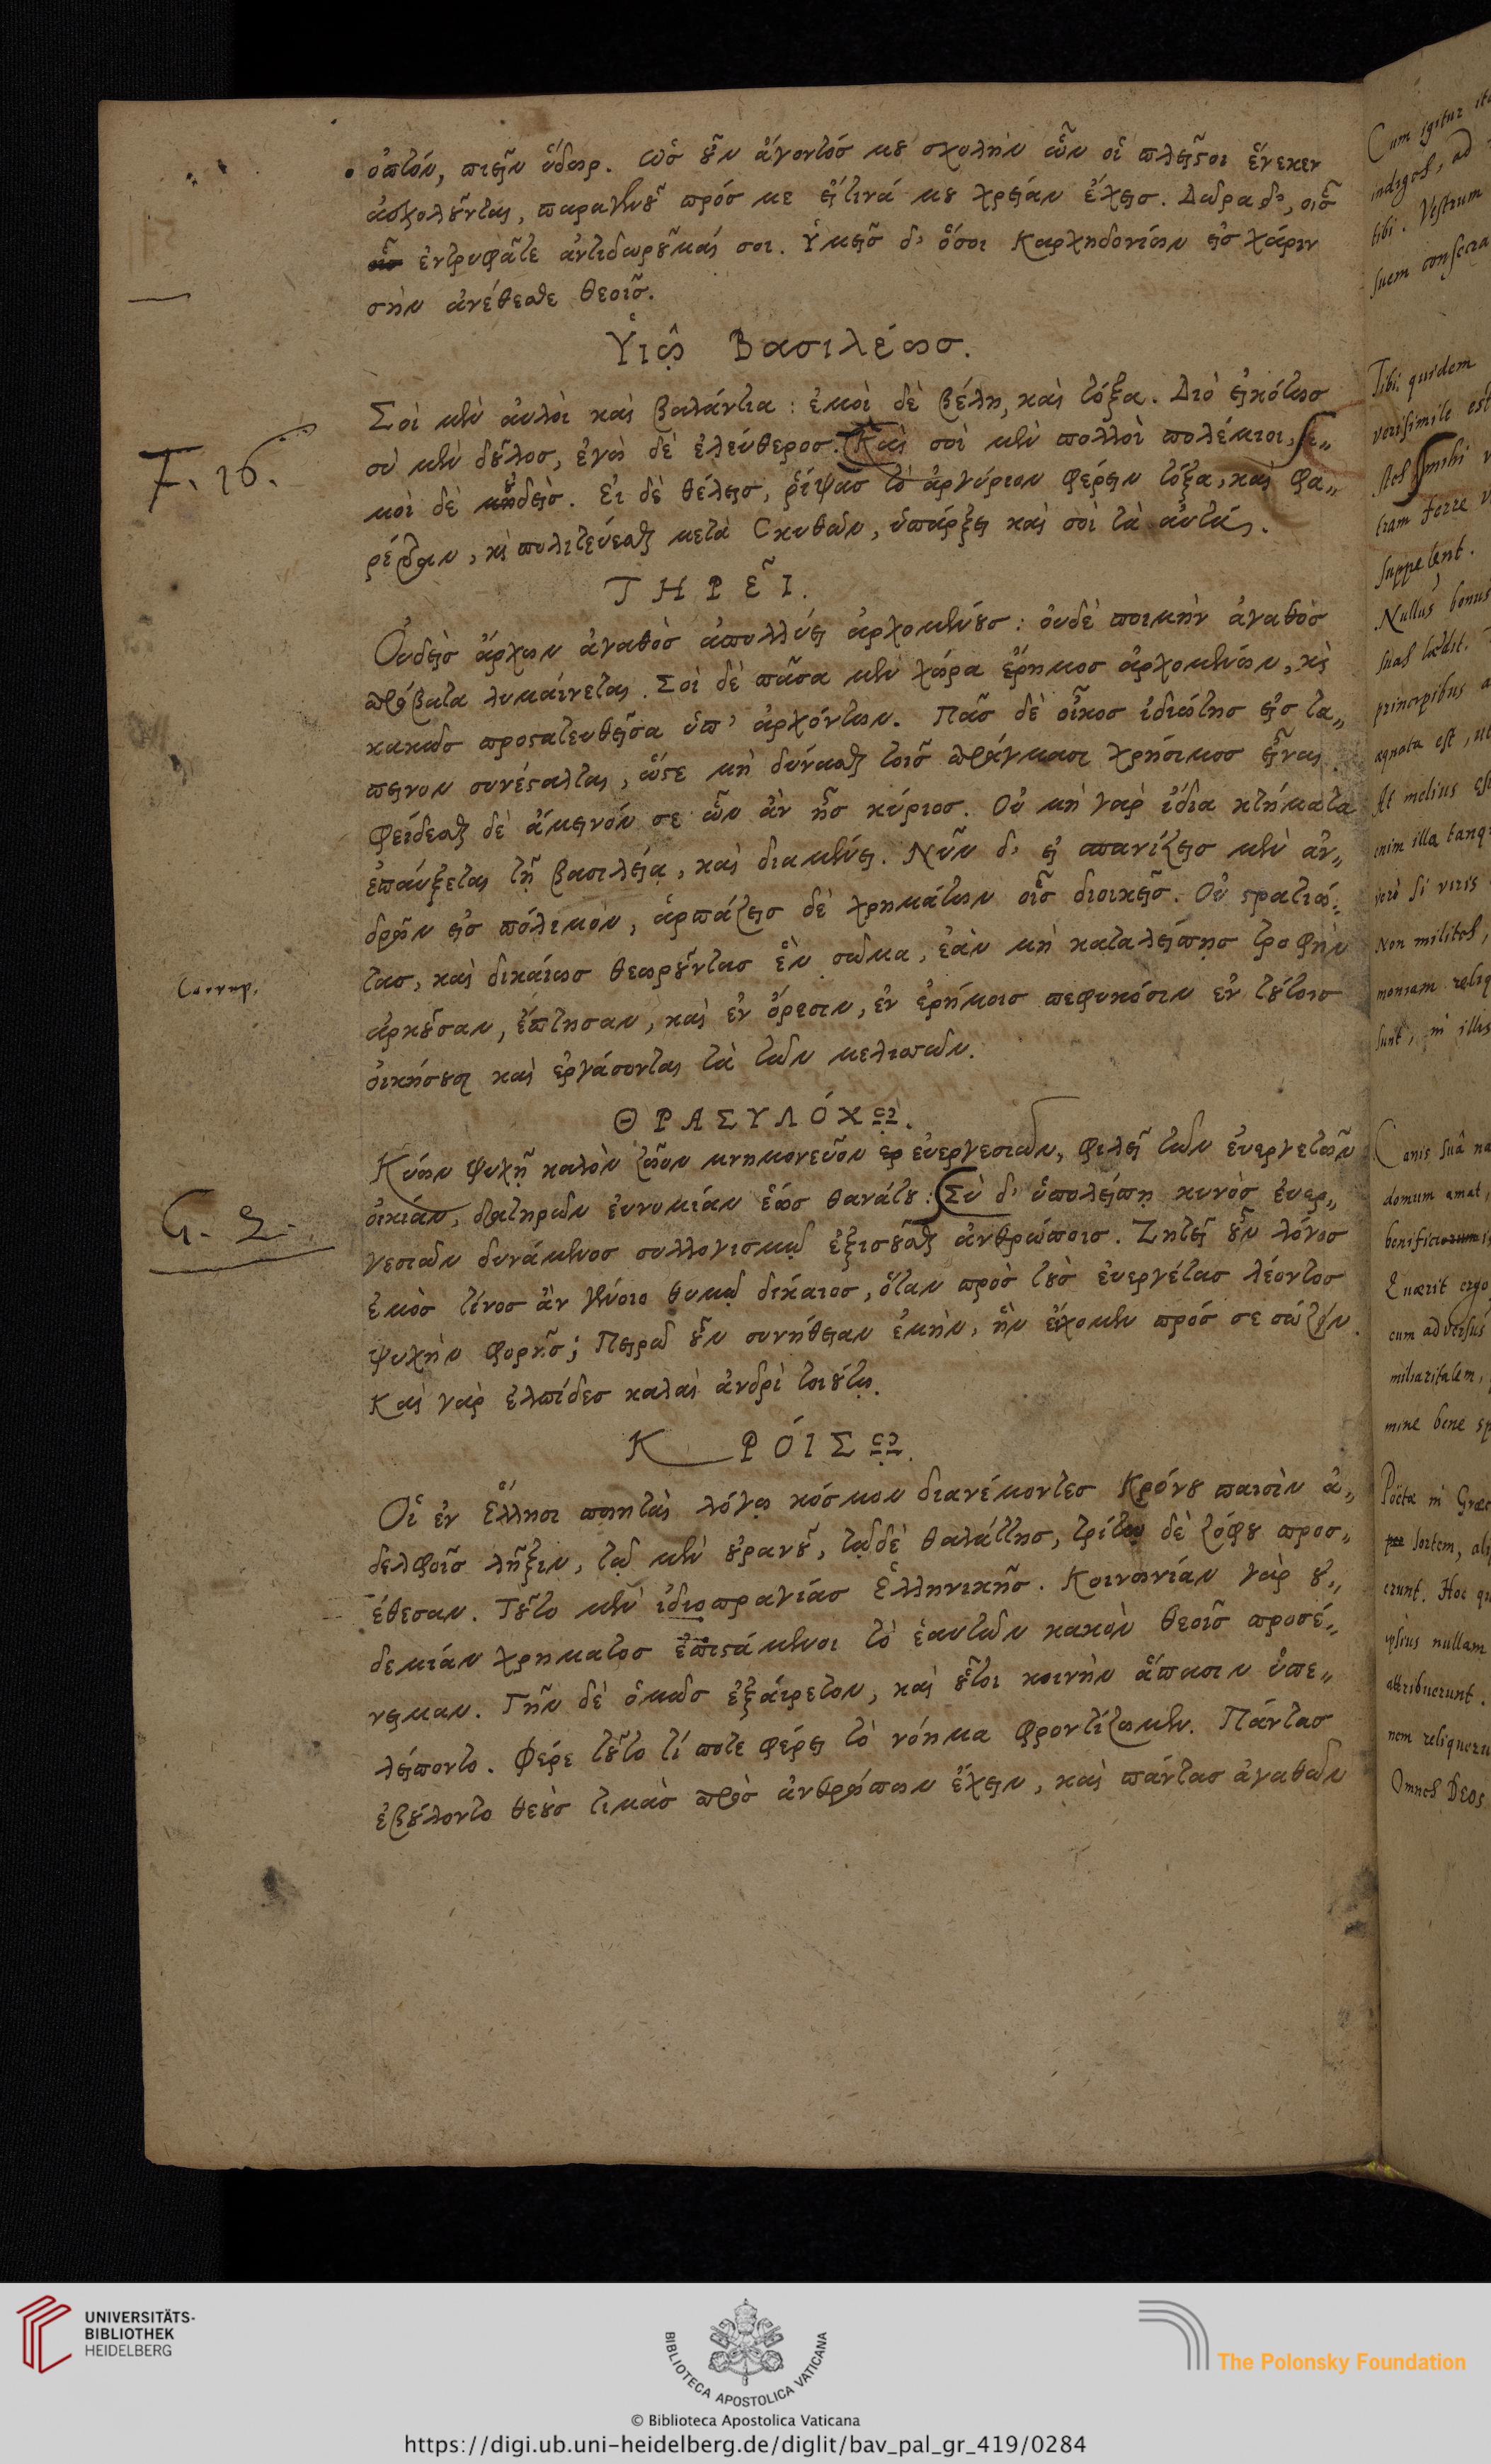 ὀπτόν, πιεῖν ὕδωρ. ὡς οὖν ἄγοντός μου σχολὴν ὧν οἱ πλεῖστοι ἕνεκεν
ἀσχολοῦνται, παραγενοῦ πρός με εἴ τινά μου χρείαν ἔχεις. Δῶρα δ᾽, οἷς
ἐντρυφᾶτε ἀντιδωροῦμαί σοι. Ὑμεῖς δ᾽ ὅσοι Καρχηδονίων εἰς χάριν
σὴν ἀνέθεσθε θεοῖς.
Υἱῷ Βασιλέως.
Σοὶ μὲν αὐλοὶ καὶ βαλάντια : ἐμοὶ δὲ βέλη, καὶ τόξα. Διὸ εἰκότως
σὺ μὲν δοῦλος, ἐγὼ δὲ ἐλεύθερος. Καὶ σοὶ μὲν πολλοὶ πολέμιοι, ἐ„
μοὶ δὲ οὐδείς. Εἰ δὲ θέλεις, ῥίψας τὸ ἀργύριον φέρειν τόξα, καὶ φα„
ρέτραν, καὶ πολιτεύεσθαι μετὰ Σκυθῶν, ὑπάρξει καὶ σοὶ τὰ αὐτά.
ΤΗΡΕῖ.
Οὐδεὶς ἄρχων ἀγαθὸς ἀπολλύει ἀρχομένους : οὐδὲ ποιμὴν ἀγαθὸς
πρόβατα λυμαίνεται. Σοὶ δὲ πᾶσα μὲν χώρα ἔρημος ἀρχομένων, καὶ
κακῶς προστατευθεῖσα ὑπ᾽ ἀρχόντων. Πᾶς δὲ οἶκος ἰδιώτης εἰς τα„
πεινον συνέσταλται, ὥστε μὴ δύνασθαι τοῖς πράγμασι χρήσιμος εἶναι.
φείδεσθαι δὲ ἄμεινόν σε ὧν ἂν ᾖς κύριος. Οὐ μὴ γὰρ ἴδια κτήματα
ἐπαύξεται τῇ βασιλείᾳ, καὶ διαμενεῖ. Νῦν δ᾽ εἰ σπανίζεις μὲν ἀν„
δρῶν εἰς πόλεμον, ἁρπάζεις δὲ χρημάτων οἷς διοικεῖς. Οὐ στρατιώ„
τας, καὶ δικαίως θεωροῦντας ἓν σῶμα, ἐὰν μὴ καταλείπῃς τροφὴν
Corrup.
ἀρκοῦσαν, ἔπτησαν, καὶ ἐν ὄρεσιν, ἐν ἐρήμοις πεφυκόσιν ἐν τούτοις
οἰκήσουσι καὶ ἐργάσονται τὰ τῶν μελισσῶν.
ΘΡΑΣΥΛΌΧῼ.
G. 2.
Κύων ψυχῇ καλὸν ζῶον μνημονεῦον εὐεργεσιῶν, φιλεῖ τῶν εὐεργετῶν
οἰκίαν, διατηρῶν εὐνομίαν ἕως θανάτου : Σὺ δ᾽ ὑπολείπῃ κυνὸς εὐερ„
γεσιῶν δυνάμενος συλλογισμῷ ἐξισοῦσθαι ἀνθρώποις. Ζητεῖ οὖν λόγος
ἐμὸς τίνος ἂν γένοιο θυμῷ δίκαιος, ὅταν πρὸς τοὺς εὐεργέτας λέοντος
ψυχὴν φορῇς; Πειρῶ οὖν συνήθειαν ἐμὴν, ἣν ἔχομεν πρός σε σώζειν.
Καὶ γὰρ ἐλπίδες καλαὶ ἀνδρὶ τοιούτῳ.
ΚΡΌΙΣῼ.
Οἱ ἐν Ἕλλησι ποιηταὶ λόγῳ κόσμον διανέμοντες Κρόνου παισὶν ἀ„
δελφοῖς λῆξιν, τῷ μὲν οὐρανοῦ, τῷ δὲ θαλάττης, τρίτῳ δὲ ζόφου προσ„
έθεσαν. Τοῦτο μὲν ἰδιοπραγίας Ἑλληνικῆς. Κοινωνίαν γὰρ οὐ„
δεμίαν χρηματος ἐπιστάμενοι τὸ ἑαυτῶν κακὸν θεοῖς προσέ„
νειμαν. Γῆν δὲ ὁμῶς ἐξαίρετον, καὶ οὗτοι κοινὴν ἅπασιν ὑπε„
λείποντο. Φέρε τοῦτο τί ποτε φέρει τὸ νόημα φροντίζωμεν. Πάντας
ἐβούλοντο θεοὺς τιμὰς πρὸς ἀνθρώπων ἔχειν, καὶ πάντας ἀγαθῶν
Cum igitur
indiges, ad
tibi. Vestrum
suem consecra
Tibi quidem
verisimile est
mihi
ferre
suppetent.
Nullus bonus
suas lædit.
principibus
At melius est
enim illa tanq
vero si viris
Non milites,
sunt, in illis
Canis sua
domum amat,
Quærit ergo
cum adversus
mine bene
Poëtæ in Græc
sortem,
erunt. Hoc
ipsius nullam
attribuerunt.
nem reliqueru
Omnes Deos
UNIVERSITÄTS-
BIBLIOTHEK
HEIDELBERG
BIBLIOTECA APOSTOLICA VATICANA
© Biblioteca Apostolica Vaticana
The Polonsky Foundation
https://digi.ub.uni-heidelberg.de/diglit/bav_pal_gr_419/0284